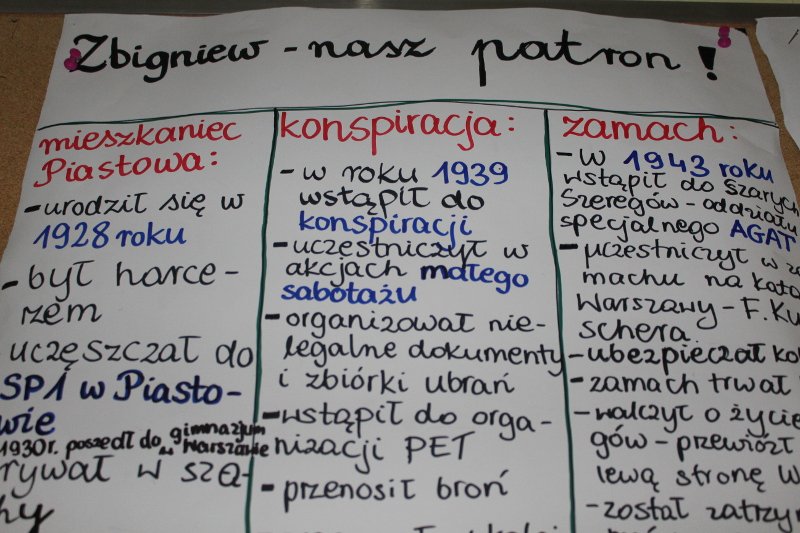 Zbigniew - nasz patron!
mieszkaniec
Piastowa:
- urodził się w
1928 roku
- był harce-
rzem
uczęszczał do
SP1 w Piasto-
wie
1930r. poszedł do gimnazjum
w Warszawie
rywał w sza-
hy
konspiracja:
- w roku 1939
wstąpił do
konspiracji
- uczestniczył w
akcjach małego
sabotażu
- organizował nie-
legalne dokumenty
i zbiórki ubrań
- wstąpił do orga-
nizacji PET
- przenosił broń
zamach:
- w 1943 roku
wstąpił do Szarych
Szeregów - oddziału
specjalnego AGAT
- uczestniczył w za
machu na kata
Warszawy - F. Ku
schera
- ubezpieczał ko
- zamach trwał
- walczył o życie
gów - przewiózł
lewą stronę W
- został zatrzy